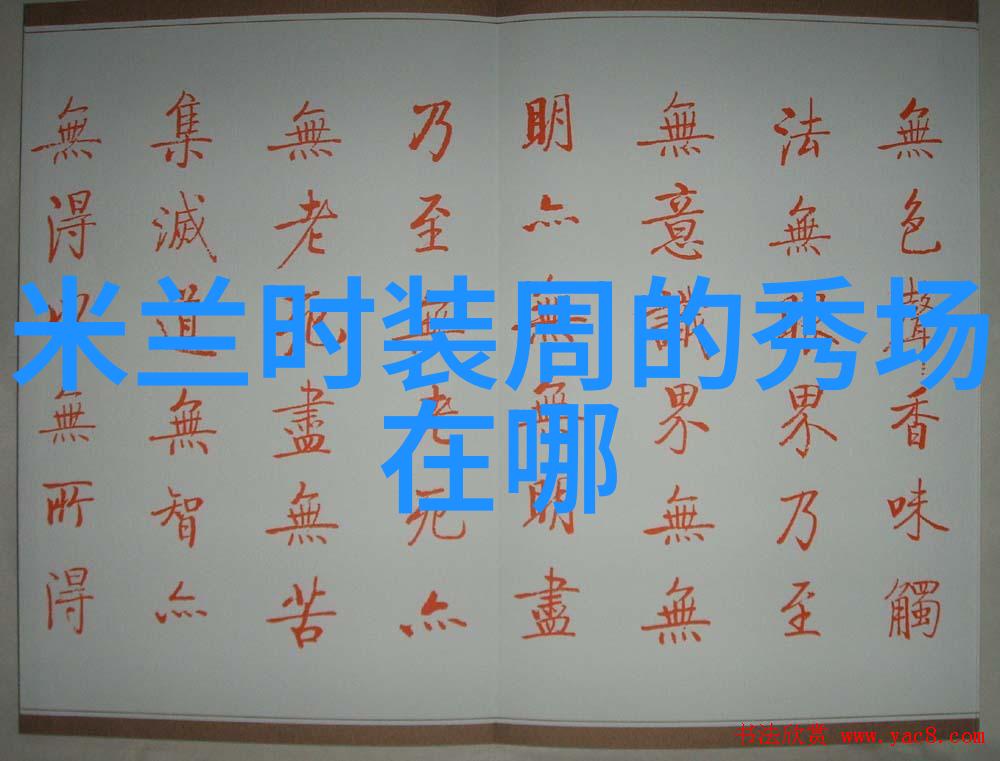 米兰时装周的秀场
在哪
無色聲香味觸
法無眼界乃至
無意識界無無
明亦無無明盡
乃至無老死亦
無老死盡無苦
集滅道無智亦
無得以無所得
书法欣赏 www.yac8.com